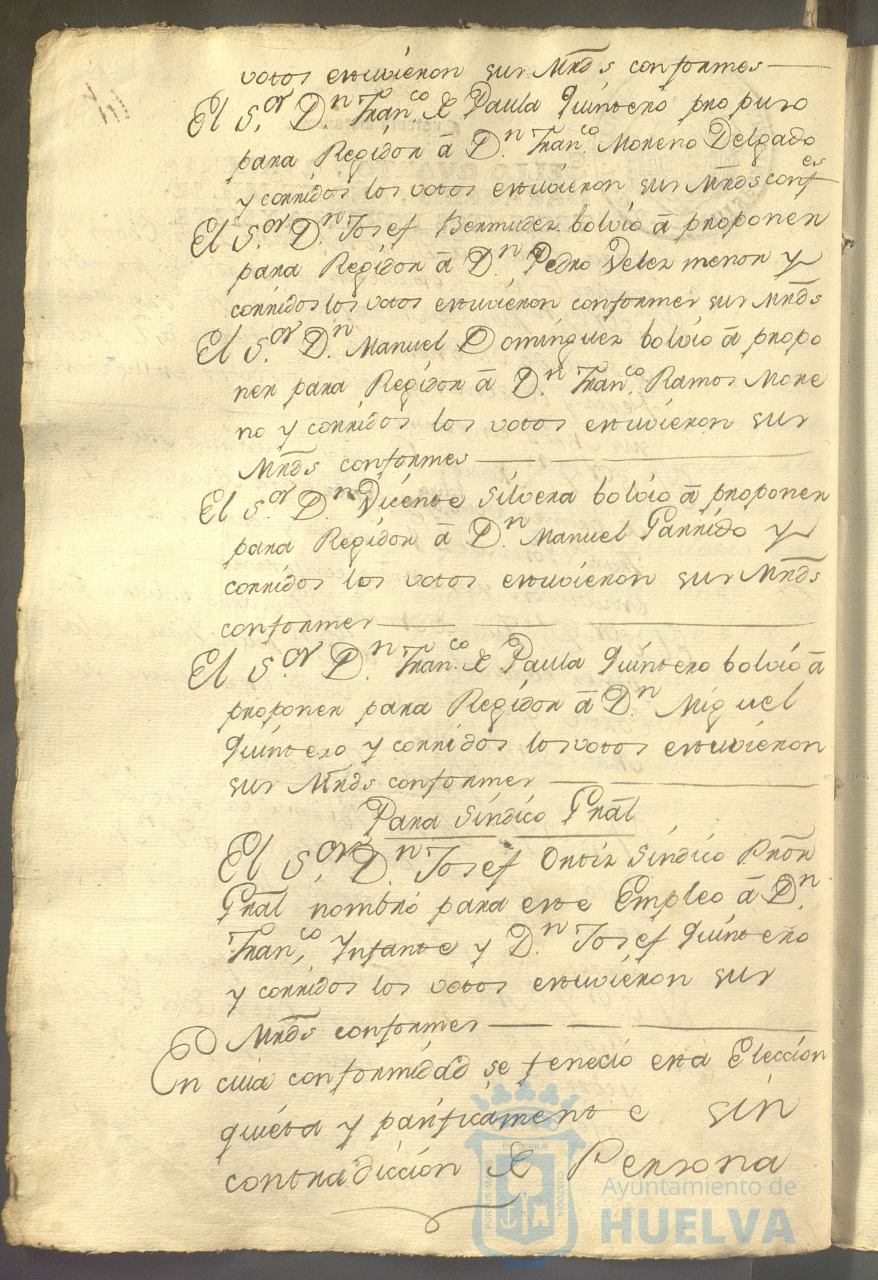 votos estuvieron sus Mrds conformes
El S.or D.n Fran.co de Paula Quintero propuso
para Regidor á D.n Fran.co Moreno Delgado
y corridos los votos estuvieron sus Mrds conf.es
El S.or D.n Josef Bermudez bolvio á proponer
para Regidor á D.n Pedro Velez menor y
corridos los votos estuvieron conformes sus Mrds
El S.or D.n Manuel Dominguez bolvio á propo
ner para Regidor á D.n Fran.co Ramos More
no y corridos los votos estuvieron sus
Mrds conformes
El S.or D.n Vicente Silvera bolvio á proponer
para Regidor á D.n Manuel Garrido y
corridos los votos estuvieron sus Mrds
conformes
El S.or D.n Fran.co de Paula Quintero bolvió á
proponer para Regidor á D.n Miguel
Quintero y corridos los votos estuvieron
sus Mrds conformes
Para Sindico Gral
El S.or D.n Josef Ortiz Sindico Pror
Gral nombró para este Empleo á D.n
Fran.co Infante y D.n Josef Quintero
y corridos los votos estuvieron sus
Mrds conformes
En cuia conformidad se feneció esta Eleccion
quieta y pasificamente sin
contradiccion de Persona
Ayuntamiento de
HUELVA